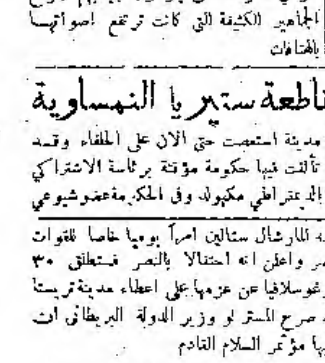 الجماهير الكثيفة التي كانت ترتفع اصواتهما
بالهتافات
ناطعة ستير يا النمساوية
مدينة استعصت حتى الان على الحلفاء وقد
تألفت فيها حكومة مؤقتة برئاسة الاشتراكي
الديمقراطي مكيولد وفي الحكومة عضو شيوعي
المارشال ستالين امراً يوميا خاصا للقوات
واعلن انه احتفالا بالنصر ستطلق ٣٠
غوسلافيا عن عزمها على اعطاء مدينة تريستا
صرح المستر لو وزير الدولة البريطاني ان
مؤتمر السلام القادم